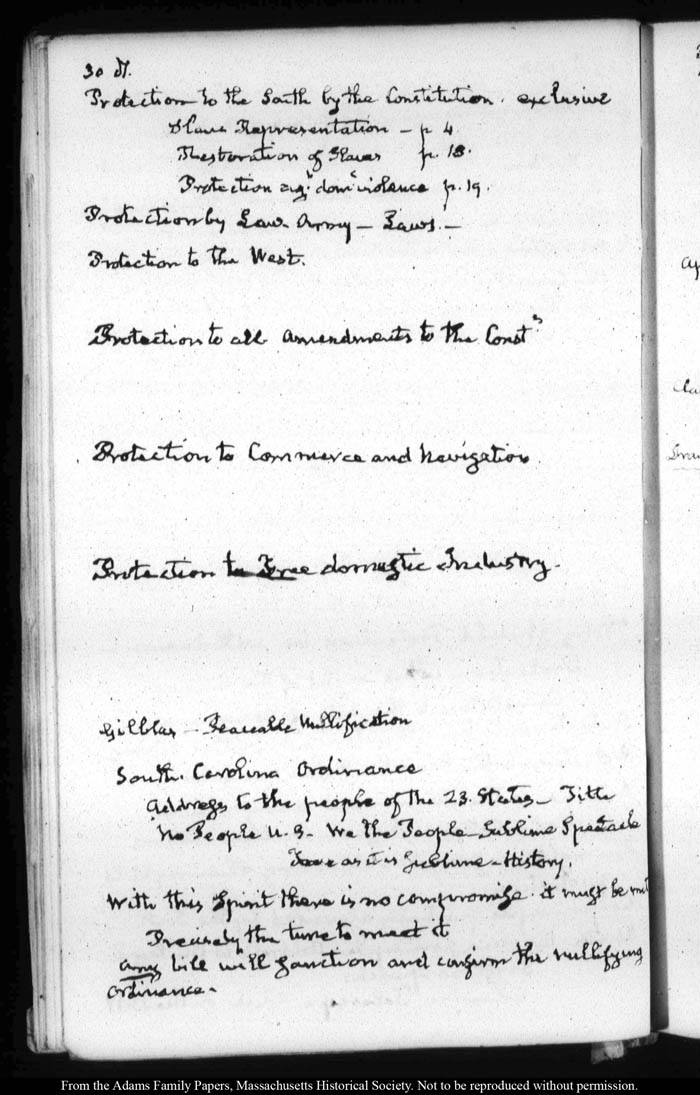 30 M.
Protection to the South by the Constitution. exclusive
Slave Representation — p 4.
Restoration of Slaves p. 18.
Protection agt "dom" violence p. 19.
Protection by Law. Army — Laws! —
Protection to the West.
Protection to all amendments to the Constn
Protection to Commerce and Navigation
Protection to Free domestic Industry.
Gilblas — Peaceable Nullification
South. Carolina Ordinance
Address to the people of the 23. States — Title
No People U.S. — We the People — Sublime Spectacle
as it is Sublime — History.
With this Spirit there is no compromise it must be met
Precisely the time to meet it
any bill will sanction and confirm the nullifying
Ordinance.
From the Adams Family Papers, Massachusetts Historical Society. Not to be reproduced without permission.